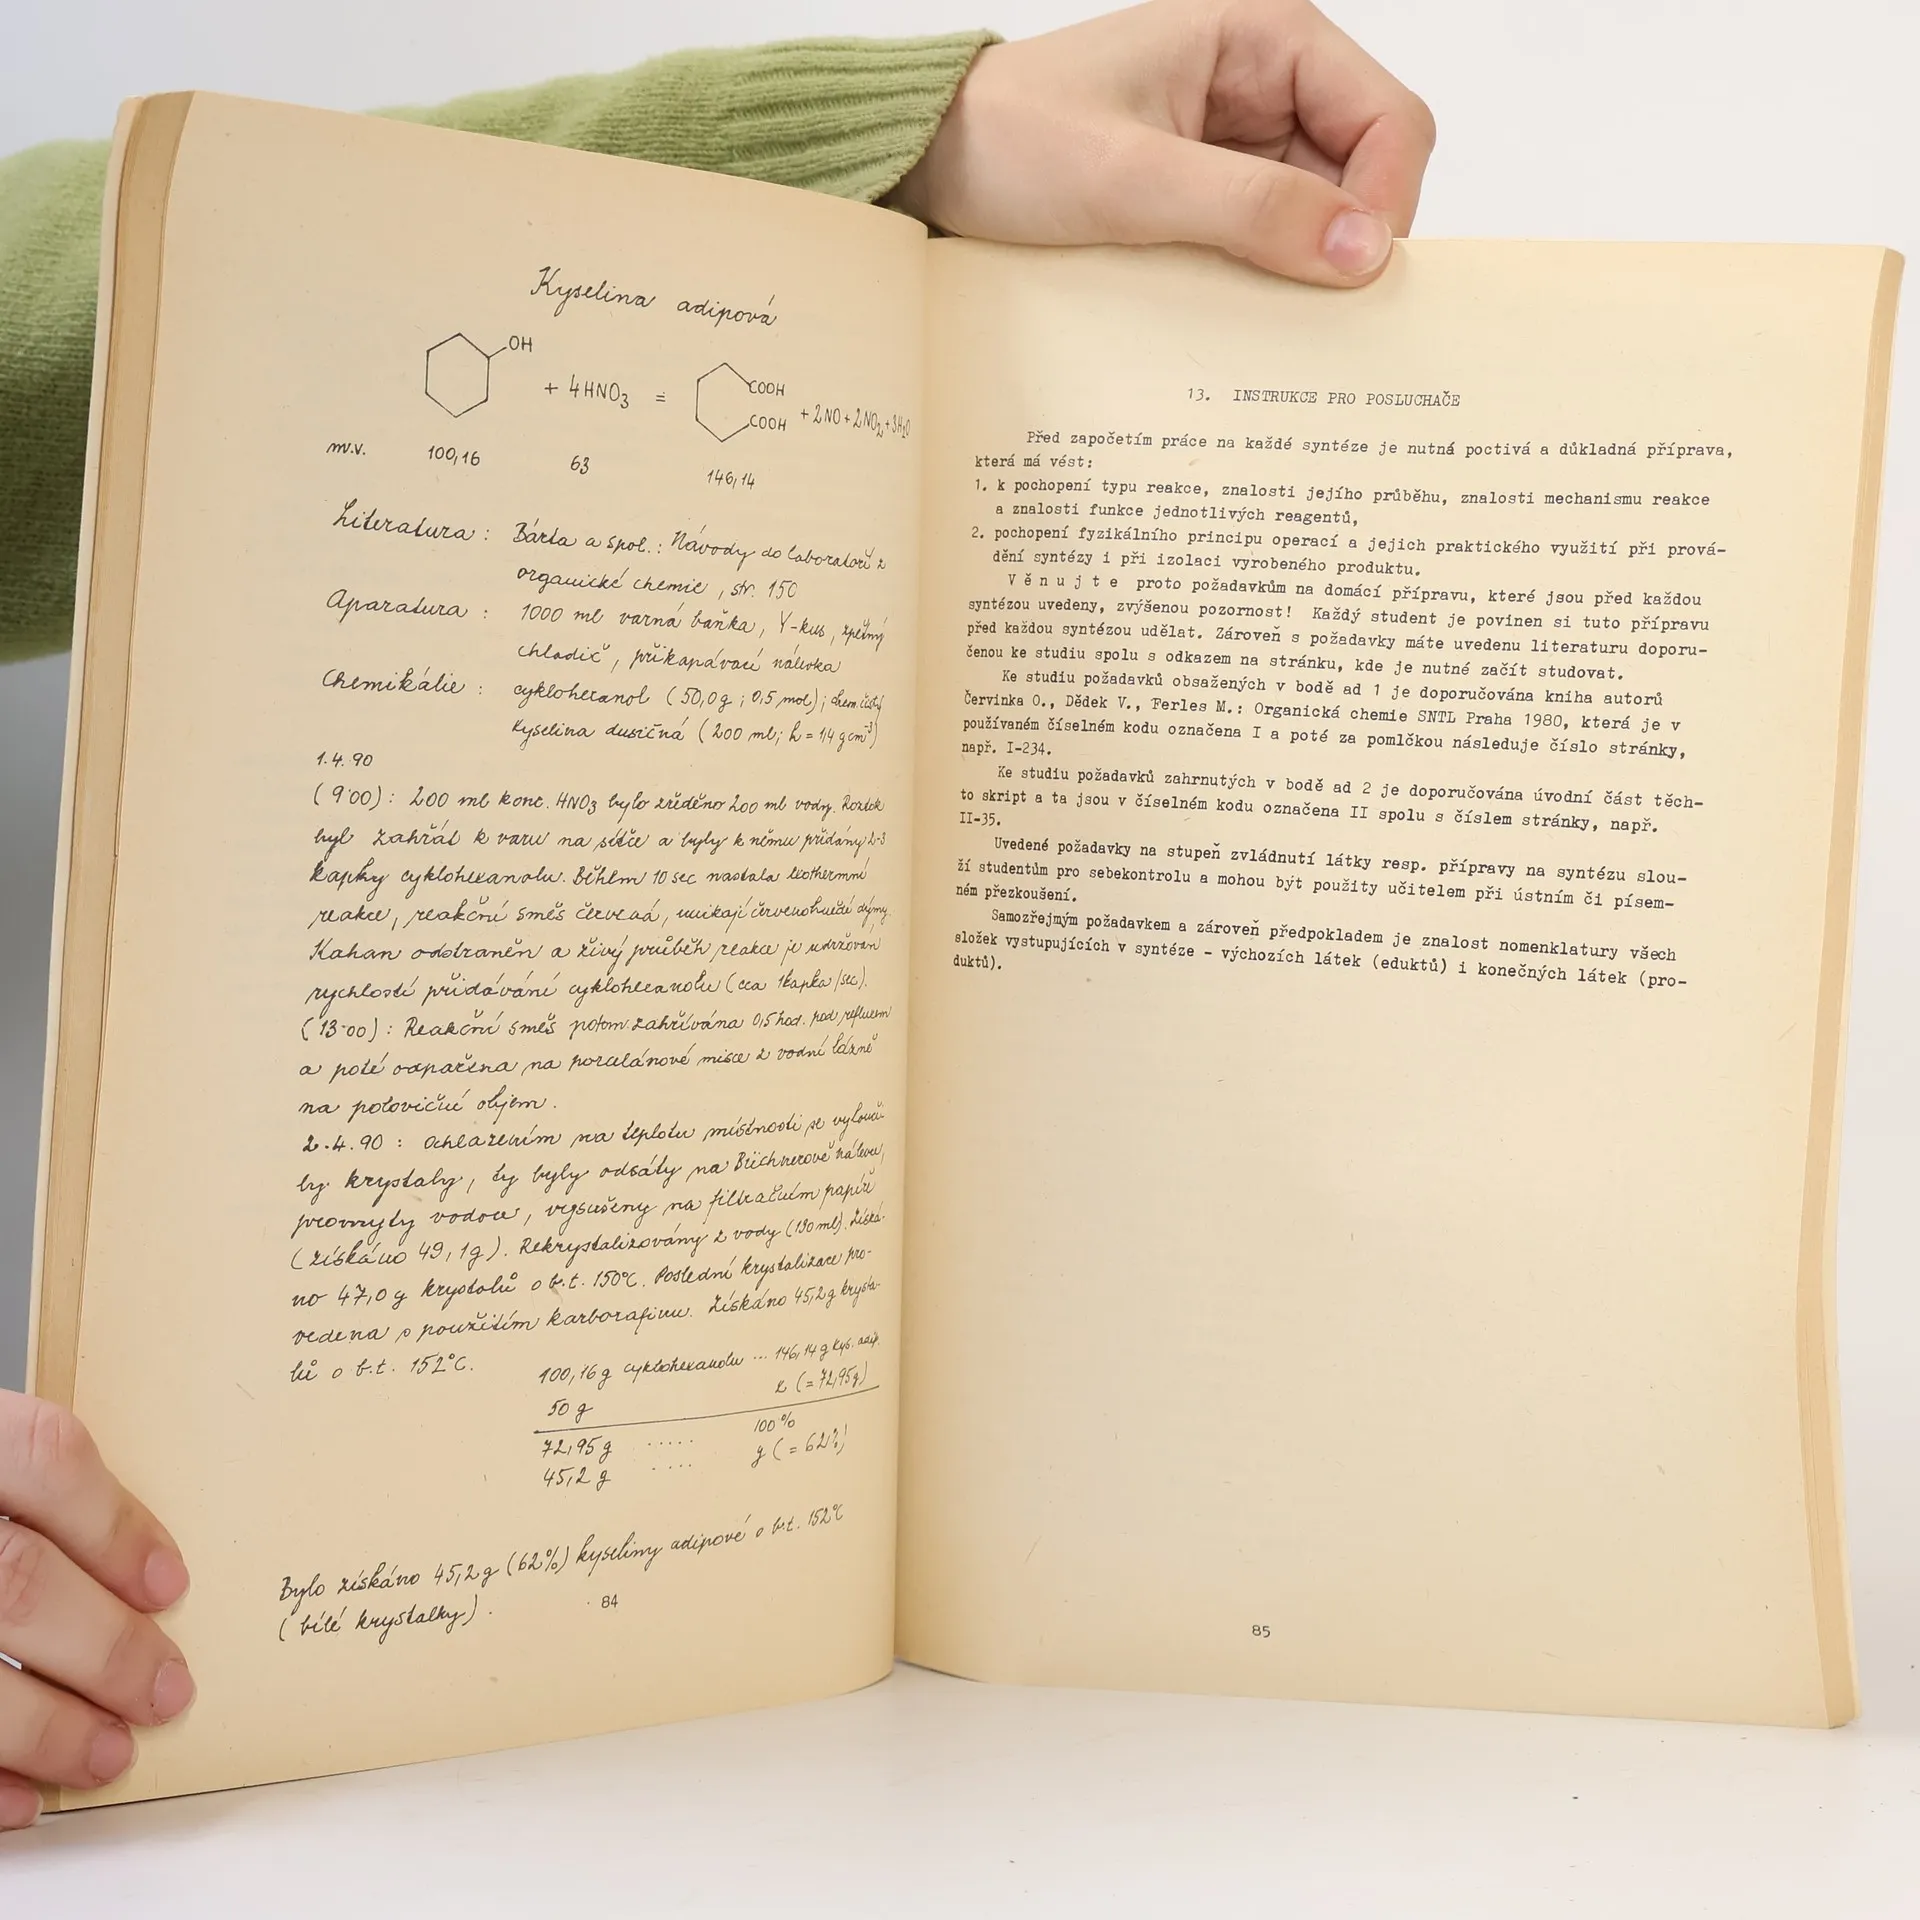 Kyselina adipová
OH
+ 4HNO3 =
COOH
COOH
+ 2NO + 2NO2 + 3H2O
m.v. 100,16 63 146,14
Literatura : Bárta a spol.: Návody do laboratoří z
organické chemie, str. 150
Aparatura : 1000 ml varná baňka, Y-kus, zpětný
chladič, přikapávací nálevka
Chemikálie : cyklohexanol (50,0g ; 0,5 mol); chem. čistý
Kyselina dusičná (200 ml; h = 1,4 g cm-3)
1.4.90
(9.00): 200 ml konc. HNO3 bylo zředěno 200 ml vody. Roztok
byl zahřát k varu na síťce a byly k němu přidány 2-3
kapky cyklohexanolu. Během 10 sec nastala exothermní
reakce, reakční směs červená, unikají červenohnědé dýmy.
Kahan odstraněn a živý průběh reakce je udržován
rychlostí přidávání cyklohexanolu (cca 1kapka/sec).
(13.00): Reakční směs potom zahřívána 0,5 hod. pod refluxem
a poté odpařena na porcelánové misce z vodní lázně
na poloviční objem.
2.4.90 : Ochlazením na teplotu místnosti se vylouči-
ly krystaly, ty byly odsáty na Büchnerově nálevce,
promyty vodou, vysušeny na filtračním papíře
(získáno 49,1g). Rekrystalizovány z vody (130 ml). Získá-
no 47,0 g krystalů o b.t. 150°C. Poslední krystalizace pro-
vedena s použitím karborafinu. Získáno 45,2g krysta-
lů o b.t. 152°C.
100,16 g cyklohexanolu ... 146,14 g kys. adip.
50 g x (= 72,95g)
72,95 g ..... 100 %
45,2 g .... y (= 62%)
Bylo získáno 45,2 g (62%) kyseliny adipové o b.t. 152°C
(bílé krystalky).
84
13. INSTRUKCE PRO POSLUCHAČE
Před započetím práce na každé syntéze je nutná poctivá a důkladná příprava,
která má vést:
1. k pochopení typu reakce, znalosti jejího průběhu, znalosti mechanismu reakce
a znalosti funkce jednotlivých reagentů,
2. pochopení fyzikálního principu operací a jejich praktického využití při prová-
dění syntézy i při izolaci vyrobeného produktu.
V ě n u j t e proto požadavkům na domácí přípravu, které jsou před každou
syntézou uvedeny, zvýšenou pozornost! Každý student je povinen si tuto přípravu
před každou syntézou udělat. Zároveň s požadavky máte uvedenu literaturu doporu-
čenou ke studiu spolu s odkazem na stránku, kde je nutné začít studovat.
Ke studiu požadavků obsažených v bodě ad 1 je doporučována kniha autorů
Červinka O., Dědek V., Ferles M.: Organická chemie SNTL Praha 1980, která je v
používaném číselném kodu označena I a poté za pomlčkou následuje číslo stránky,
např. I-234.
Ke studiu požadavků zahrnutých v bodě ad 2 je doporučována úvodní část těch-
to skript a ta jsou v číselném kodu označena II spolu s číslem stránky, např.
II-35.
Uvedené požadavky na stupeň zvládnutí látky resp. přípravy na syntézu slou-
ží studentům pro sebekontrolu a mohou být použity učitelem při ústním či písem-
ném přezkoušení.
Samozřejmým požadavkem a zároveň předpokladem je znalost nomenklatury všech
složek vystupujících v syntéze - výchozích látek (eduktů) i konečných látek (pro-
duktů).
85